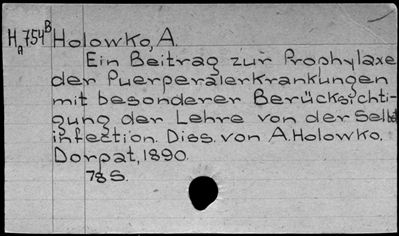 HA754B Holowko, A.
Ein Beitrag zur Prophylaxe
der Puerperalerkrankungen
mit besonderer Berücksichti-
gung der Lehre von der Selbst
infection. Diss. von A. Holowko.
Dorpat, 1890.
78 S.